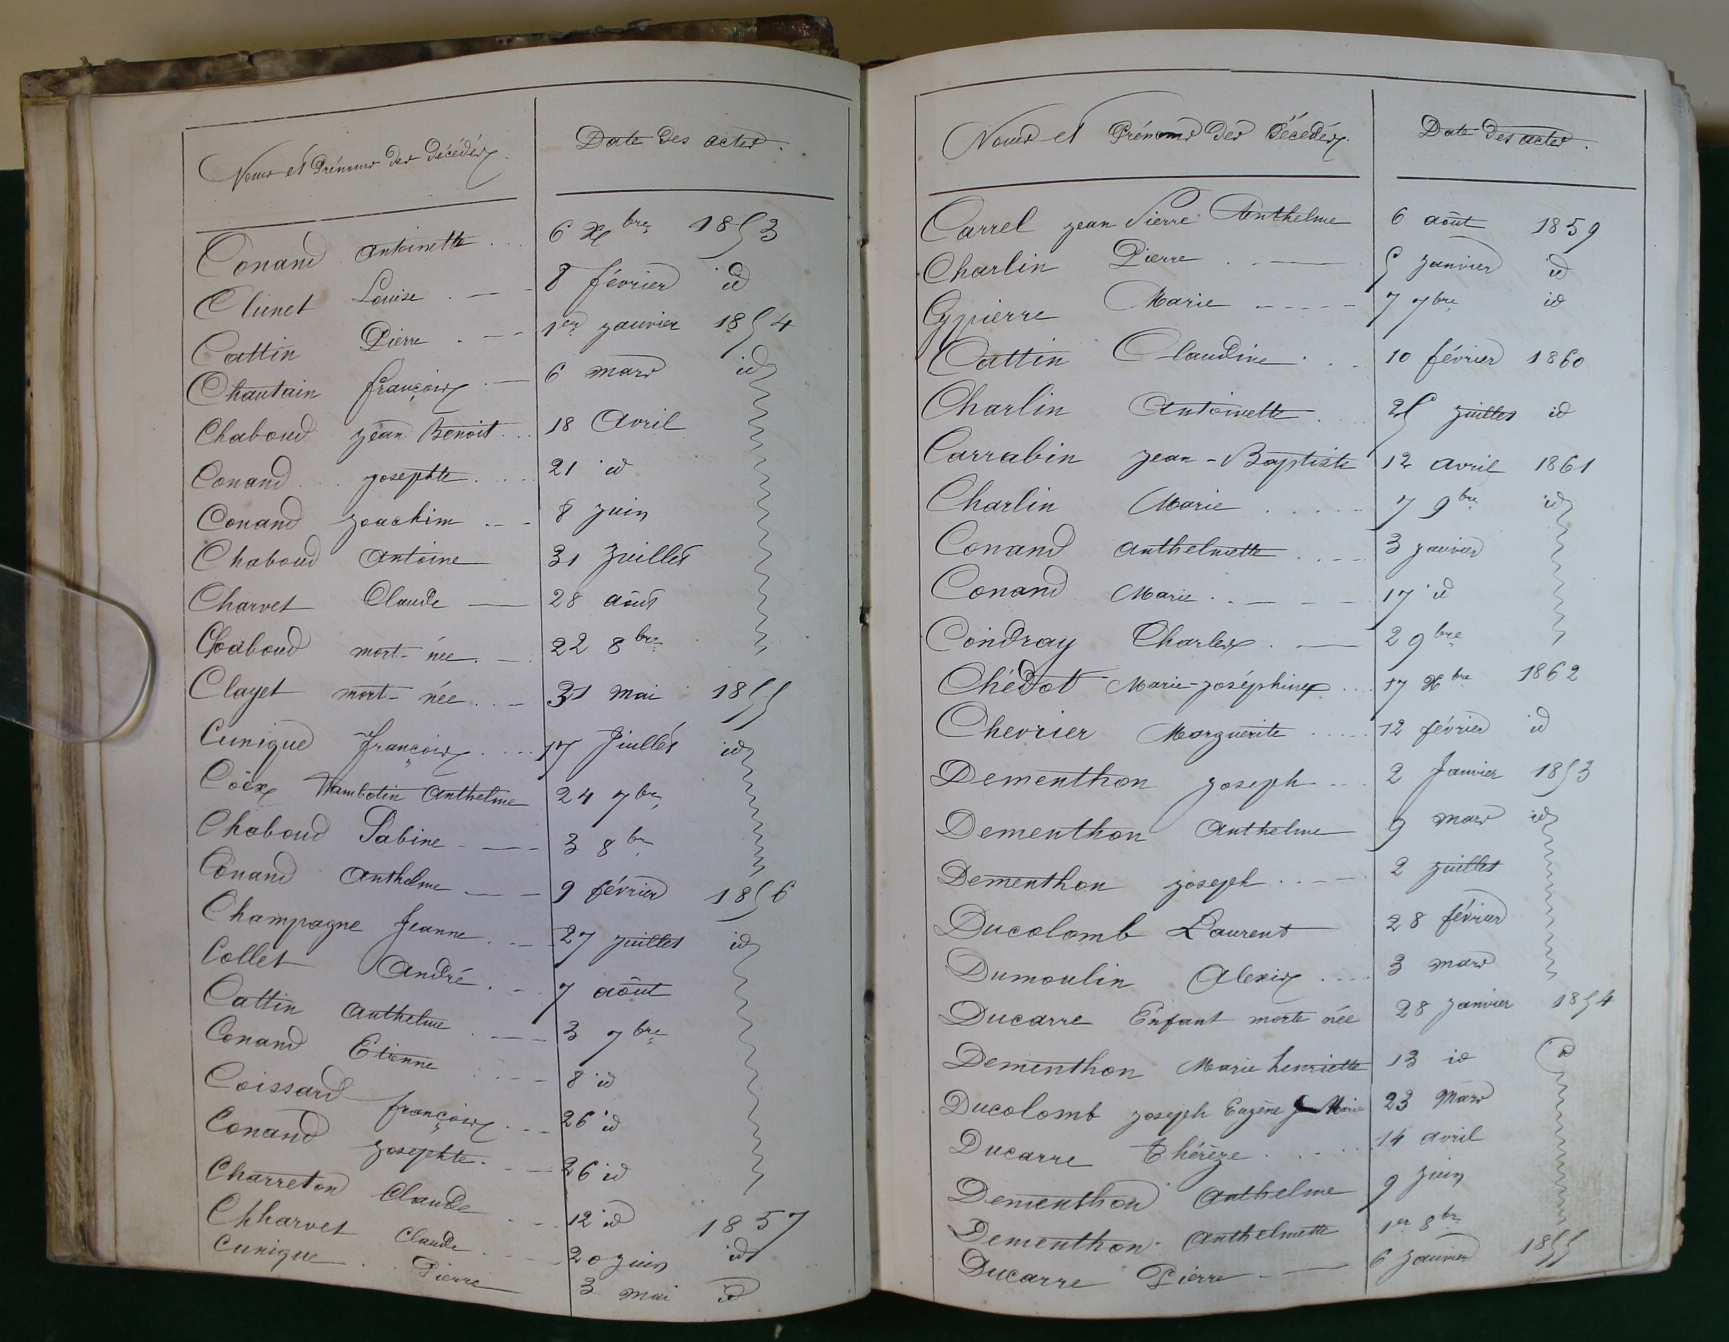 Noms et Prénoms des Décédés. Date des actes.
Conand Antoinette 6 Xbre 1853
Clunet Louise 8 février id
Cattin Pierre 1er janvier 1854
Chautain françois 6 mars id
Chaboud jean Benoit 18 Avril
Conand josephte 21 id
Conand joachim 8 juin
Chaboud Antoine 31 juillet
Charvet Claude 28 août
Chaboud mort-née 22 8bre
Clayet mort-née 31 mai 1855
Cunique françois 17 juillet id
Coëx Anthelme 24 7bre
Chaboud Sabine 3 8bre
Conand Anthelme 9 février 1856
Champagne Jeanne 27 juillet id
Collet André 7 août
Cattin Anthelme 3 7bre
Conand Etienne 8 id
Coissard françois 26 id
Conand josephte 26 id
Charreton Claude 12 id 1857
Chharvet Claude 20 juin id
Cunique Pierre 3 mai id
Noms et Prénoms des Décédés. Date des actes.
Carrel jean Pierre Anthelme 6 août 1859
Charlin Pierre 5 janvier id
Gypierre Marie 7 7bre id
Cattin Claudine 10 février 1860
Charlin Antoinette 25 juillet id
Carrabin jean-Baptiste 12 avril 1861
Charlin Marie 7 9bre id
Conand Anthelmette 3 janvier
Conand Marie 17 id
Condray Charles 2 9bre
Chédot Marie-joséphine 17 Xbre 1862
Chevrier Marguerite 12 février id
Dementhon joseph 2 Janvier 1853
Dementhon Anthelme 9 mars id
Dementhon joseph 2 juillet
Ducolomb Laurent 28 février
Dumoulin Alexis 3 mars
Ducarre Enfant morte née 28 janvier 1854
Dementhon Marie henriette 13 id id
Ducolomb joseph Eugène Marie 23 Mars
Ducarre Thérèze 14 avril
Dementhon Anthelme 9 juin
Dementhon Anthelmette 1er 8bre
Ducarre Pierre 6 janvier 1855